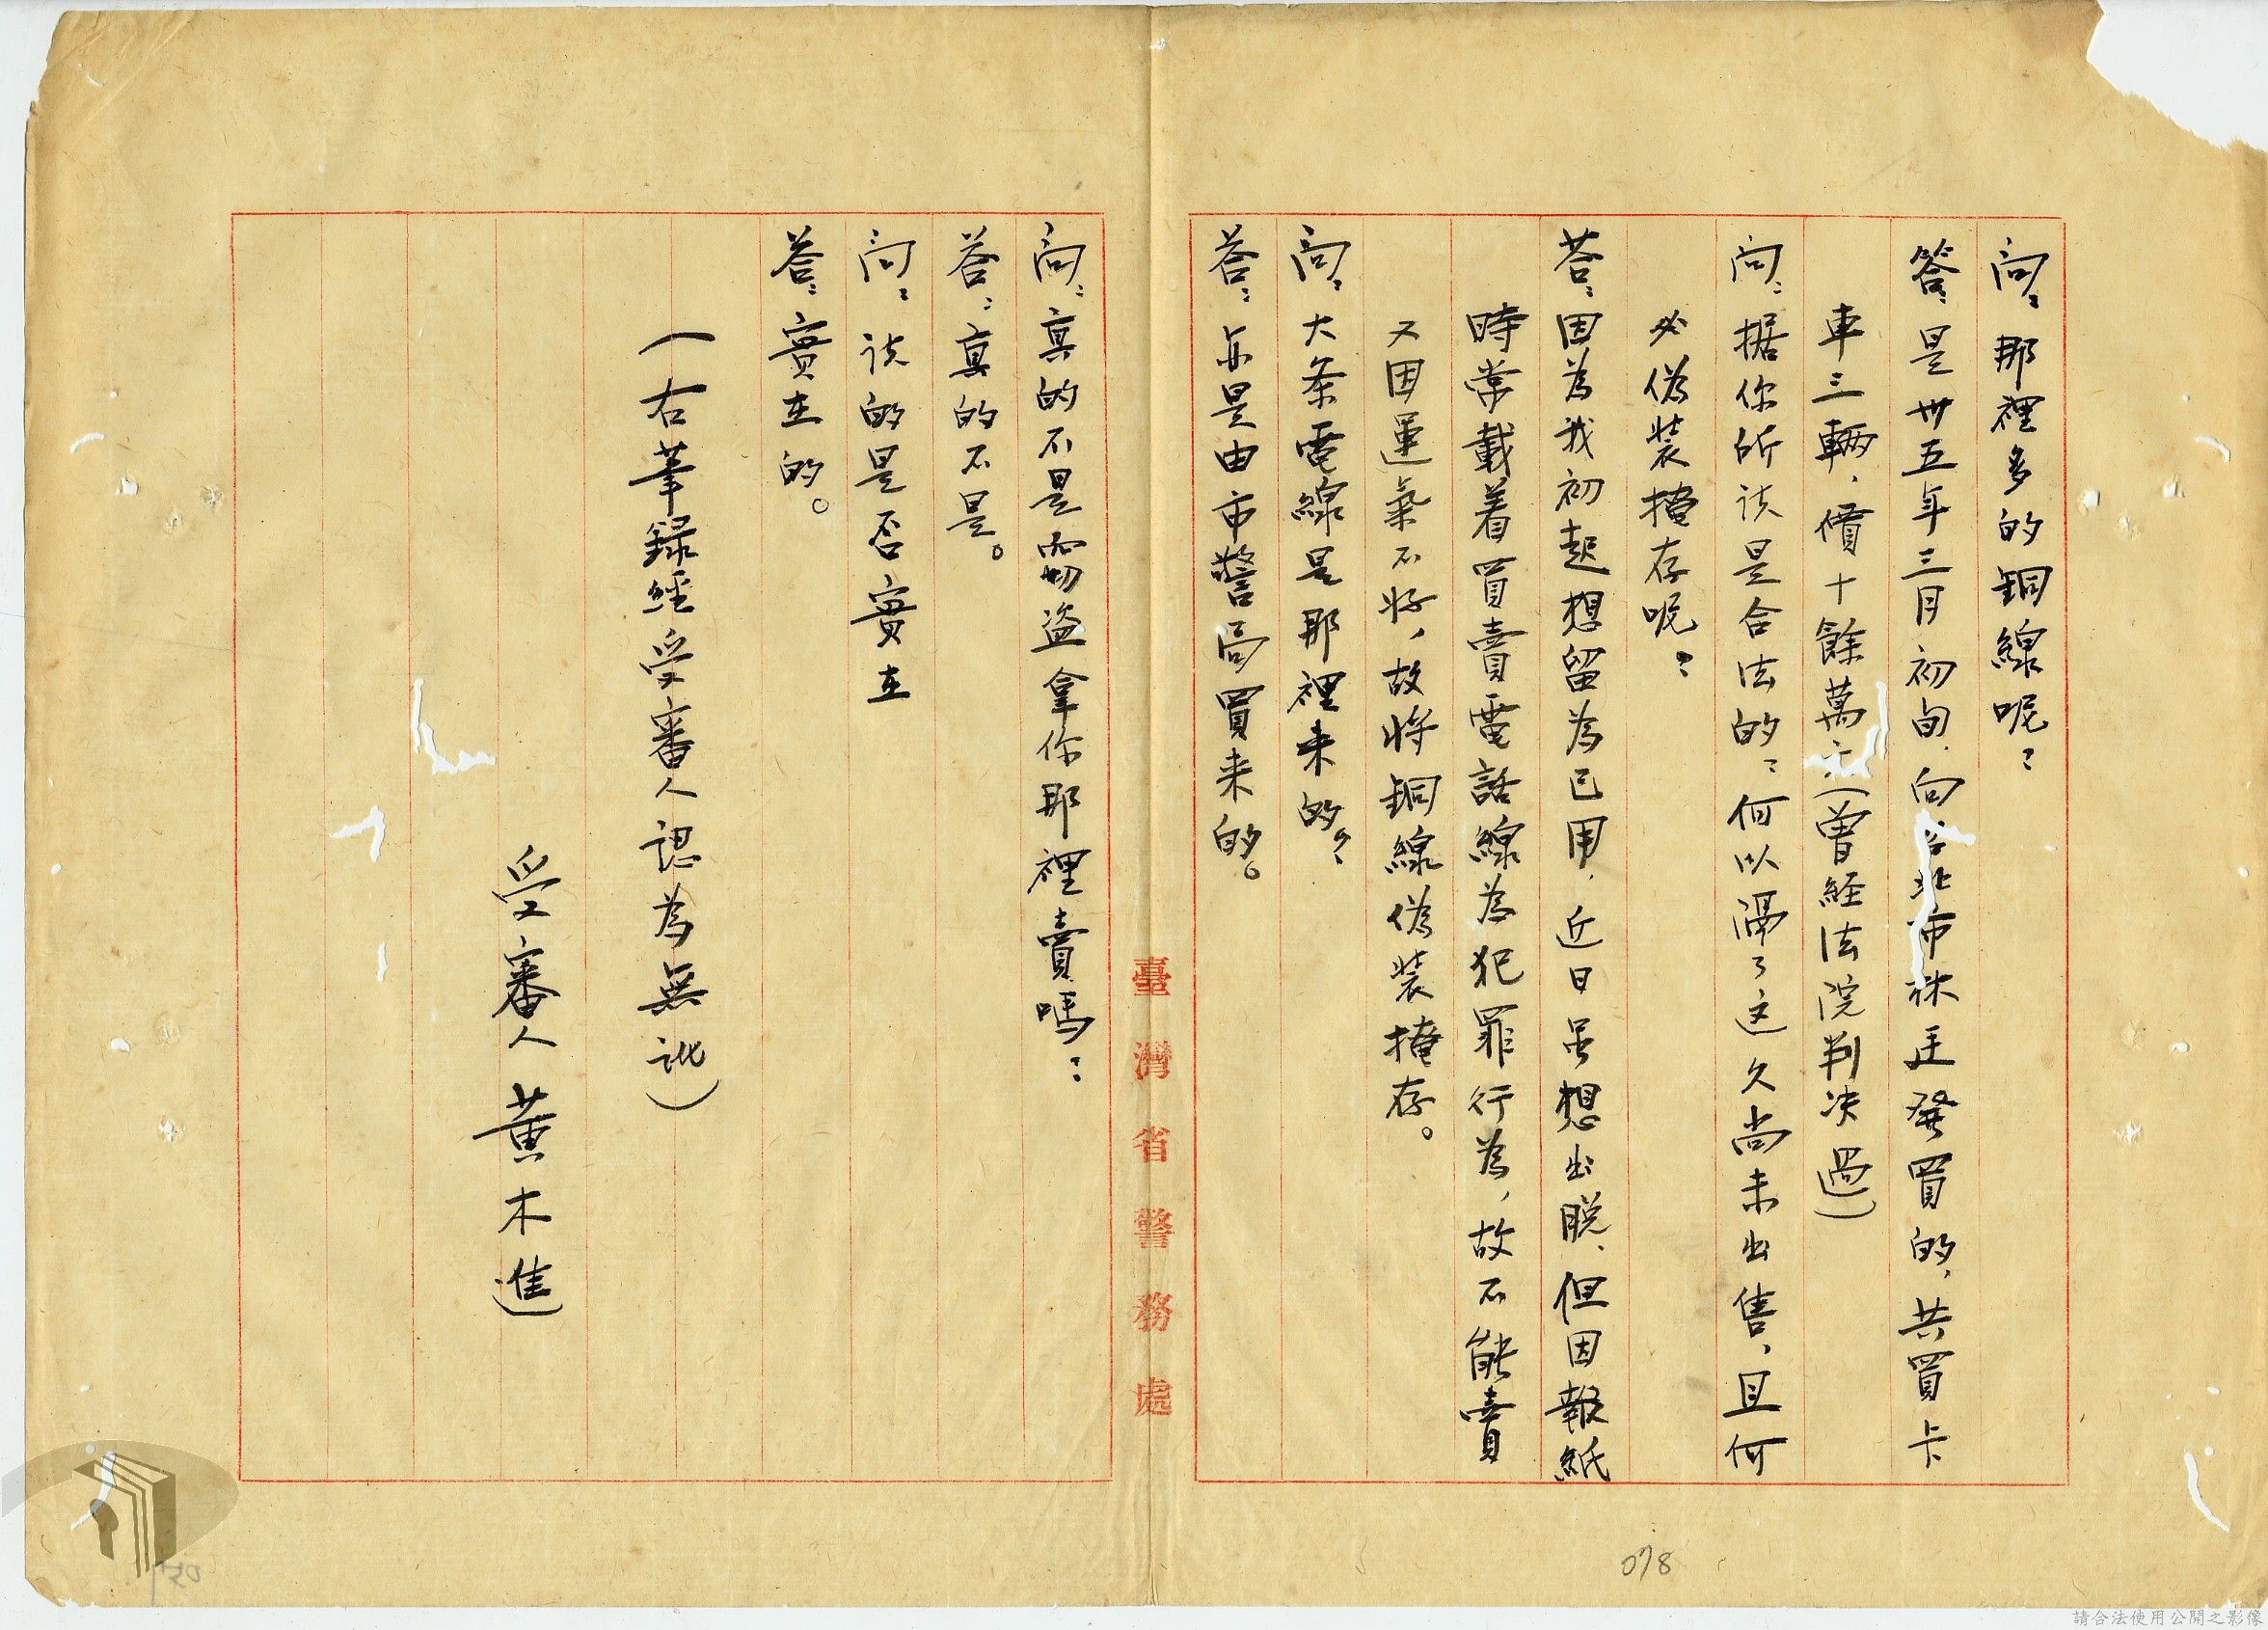 問：那裡多的銅線呢？
答：是卅五年三月初旬，向台北市林廷發買的，共買卡
車三輛，價十餘萬元（曾経法院判决過）
問：据你所说是合法的？何以隔了这久尚未出售，且何
必偽裝掩存呢？
答：因為我初起想留為己用，近日虽想出脱，但因報紙
時常載着買賣電話線為犯罪行為，故不能賣
又因運氣不好，故将銅線偽装掩存。
問：大条電線是那裡来的？
答：亦是由市警局買来的。
臺灣省警務處
問：真的不是竊盗拿你那裡賣嗎？
答：真的不是。
問：说的是否實在
答：實在的。
（右筆録經受審人認為無訛）
受審人黃木進
078
請合法使用公開之影像